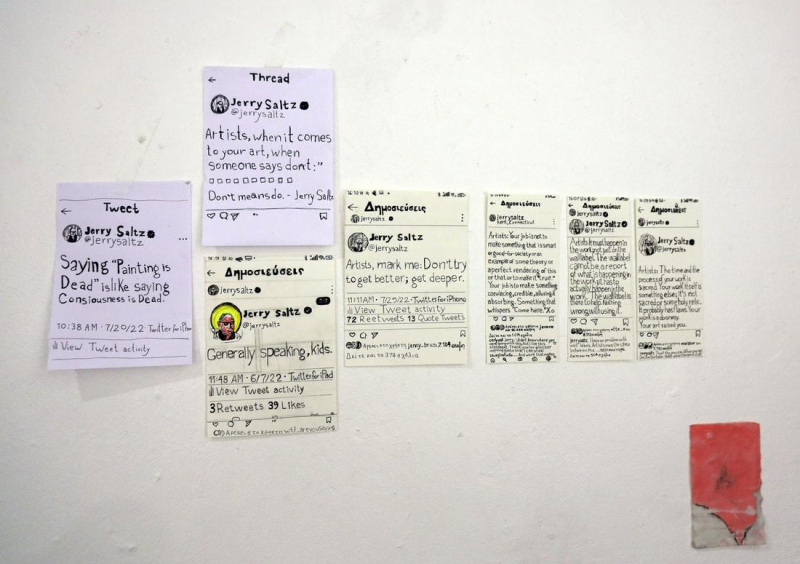 Tweet
Jerry Saltz
@jerrysaltz
Saying "Painting is
Dead" is like saying
Consiousness is Dead.
10:38 AM · 7/20/22 Twitter for iPhon
View Tweet activity
Thread
Jerry Saltz
@jerrysaltz
Artists, when it comes
to your art, when
someone says don't:"
Don't means do. - Jerry Saltz
Δημοσιεύσεις
jerrysaltz
Jerry Saltz
@jerrysaltz
Generally speaking, kids.
11:48 AM · 6/7/22 · Twitter for iPad
View Tweet activity
3 Retweets 39 Likes
Δημοσιεύσεις
jerrysaltz
Jerry Saltz
@jerrysaltz
Artists, mark me: Don't try
to get better; get deeper.
11:11 AM · 7/25/22 · Twitter for iPhone
View Tweet activity
72 Reetweets 13 Quote Tweets
Δημοσιεύσεις
jerrysaltz
Kent, Connecticut
Artists: Your job is not to
make something that is smart
or good for society or an
example of some theory or
a perfect rendering of this
or that or to make it "true."
Your job is to make something
convincing, credible, alluring &
absorbing. Something that
whispers "Come here." Xo
Δημοσιεύσεις
Jerry Saltz
@jerrysaltz
Artists: It must happen in
the work, not just on the
wall label. The wall label
cannot be a report
of what is happening in
the work, it has to
actually happen in the
work. The wall label is
there to help. Nothing
wrong with using it.
Δημοσιεύσεις
Jerry Saltz
@jerrysaltz
Artists: The time and the
process of your work is
sacred. Your work itself is
something else; it's not
sacred or some holy relic.
It probably has flaws. Your
work is a doorway.
Your art raised you.